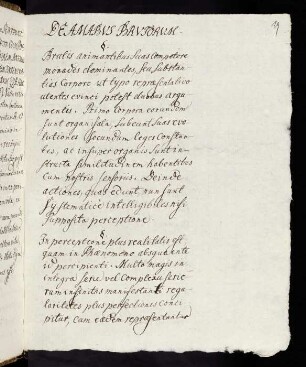 DE ANIMABUS BRUTORUM.
§.
Brutis animantibus suas competere
monades dominantes, seu substan-
tias corpore ut typo repræsentativo
utentes evinci potest duobus argu-
mentis. Primo corpora eorundem
sunt organisata, subeunt suas evo-
lutiones secundum leges constan-
tes, ac insuper organis sunt in-
structa similitudinem habentibus
cum nostris sensoriis. Deinde
actiones, quas edunt non sunt
systematice intelligibiles nisi
supposita perceptione.
§.
In perceptione plus realitatis est
quam in Phænomeno absque ente
id percipienti. Multo magis in
integra serie vel complexu serie-
rum infinitas manifestante regu-
laritates plus perfectionis conci-
pitur, cum eædem repræsentantur
19